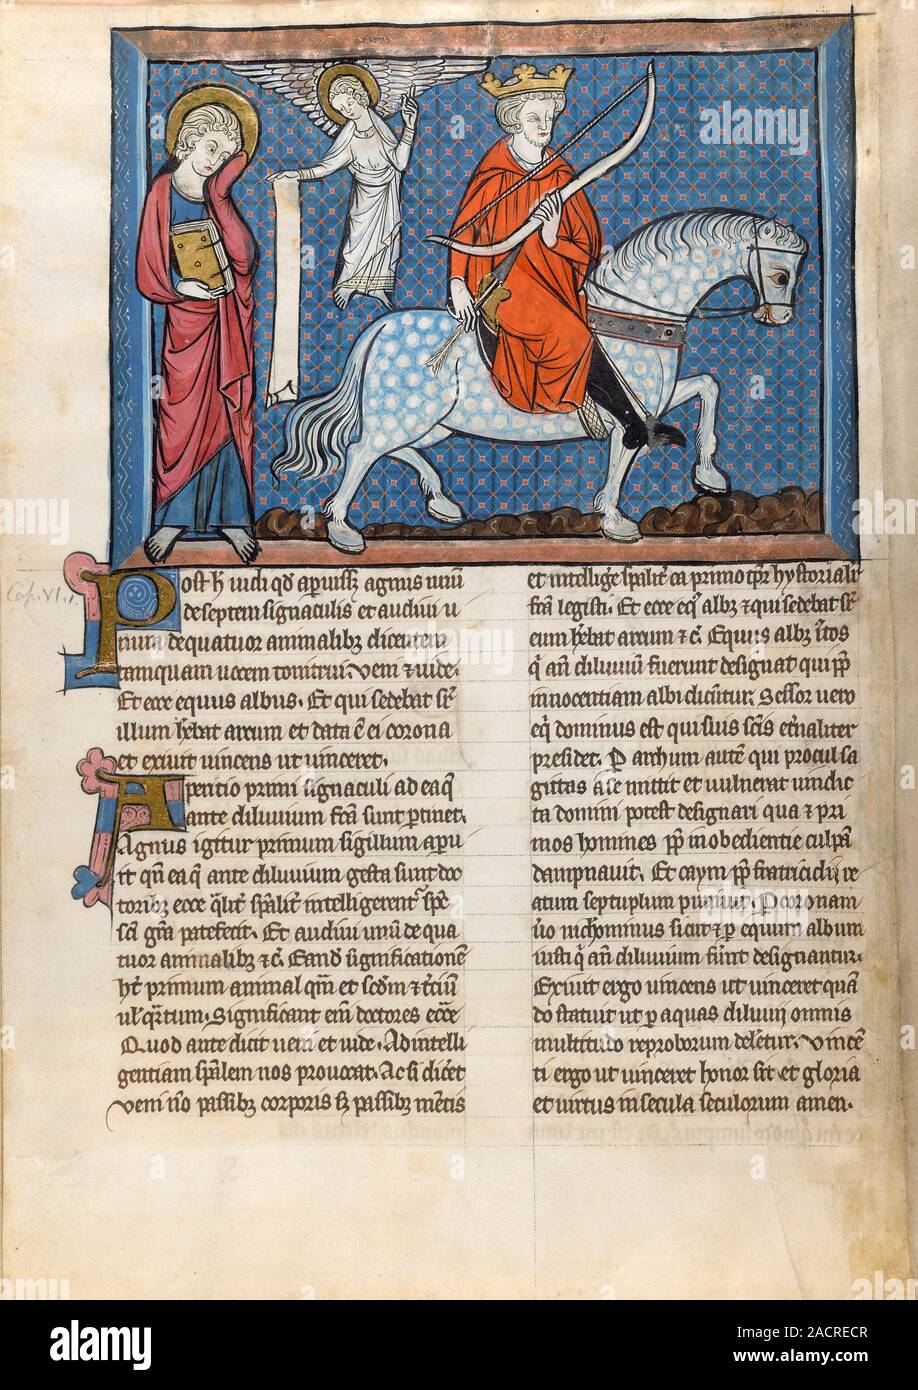 Cap. VI. 1.
Post h̄ uidi qd̄ aperuiss; agnus unū
de septem signaculis et audiui u
num de quatuor animalibꝫ dicentem
tamquam uocem tonitrui. Veni ⁊ uide.
Et ecce equus albus. Et qui sedebat sr̄
illum hēbat arcum et data ē ei corona
et exiuit uincens ut uinceret.
Apertio primi signaculi ad ea q̄
ante diluuium fc̄a sunt ꝑtinet.
Agnus igitur primum sigillum apru
it qn̄ ea q̄ ante diluuium gesta sunt doc
toribꝫ ecc̄e qͣlit̄ sp̄alit̄ intelligerent sp̄c
sc̄i gr̄a patefecit. Et audiui unū de qua
tuor animalibꝫ ⁊c̄. Eand̄ significationē
ht̄ primum animal qm̄ et sc̄dm ⁊ t̄ciū
ul̄ qͣrtum. Significant em̄ doctores ecc̄e
Quod autē dicit ueni et uide. Ad intelli
gentiam sp̄alem nos prouocat. Ac si dic̄et
Veni nō passibꝫ corporis sꝫ passibꝫ mētis
et intellige sp̄alit̄ ea primo qͥ hystorialit̄
fc̄a legisti. Et ecce eqͥ albꝫ ⁊ qui sedebat sr̄
eum hēbat arcum ⁊c̄. Equus albꝫ iustos
qͥ añ diluuiū fuerunt designat qui ꝓp̄
innocentiam albi dicūtur. Sessor uero
eqͥ dominus est qui suis sc̄is et̄naliter
presidet. Ꝑ archum autē qui procul sa
gittas a se mittit et uulnerat uindic
ta domini potest designari qua ⁊ pri
mos homines ꝓp̄ inobedientie culpā
dampnauit. Et caym ꝓp̄ fratricidij re
atum septuplum puniuit. Ꝑ coronam
ũo nichominus sicut ⁊ ꝑ equum album
iusti qͥ añ diluuium fūnt designantur.
Exiuit ergo uincens ut uinceret quan
do statuit ut ꝑ aquas diluuij omnis
multitudo reproborum deletur. Vincē
ti ergo ut uinceret honor sit et gloria
et uirtus in secula seculorum amen.
alamy
Image ID: 2ACRECR
www.alamy.com